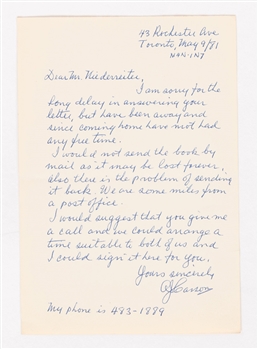 43 Rochester Ave
Toronto, May 9/81
M4N-1N7
Dear Mr. Niederreiter,
I am sorry for the
long delay in answering your
letter, but have been away and
since coming home have not had
any free time.
I would not send the book by
mail as it may be lost forever,
also there is the problem of sending
it back. We are some miles from
a post office.
I would suggest that you give me
a call and we could arrange a
time suitable to both of us and
I could sign it here for you.
Yours sincerely
My phone is 483-1889